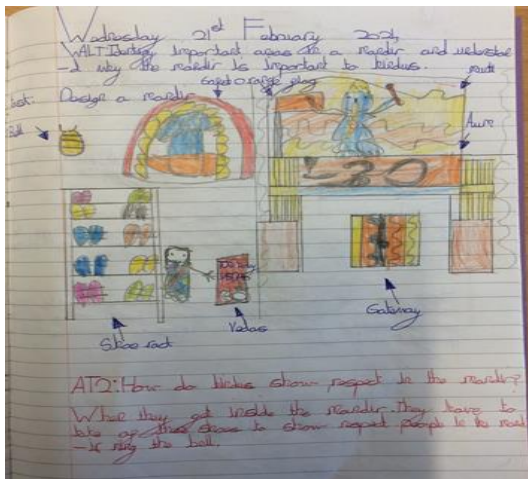 Wednesday 21st February 2024
WALT: Identify important areas in a mandir and understa
-d why the mandir is important to hindus.
Design a mandir
Bell
flag
murti
Aum
Shoe rack
Vedas
Gateway
AT2: How do hindus show respect in the mandir?
When they get inside the mandir. They have to
take of their shoes to show respect people in the mand
-ir ring the bell.